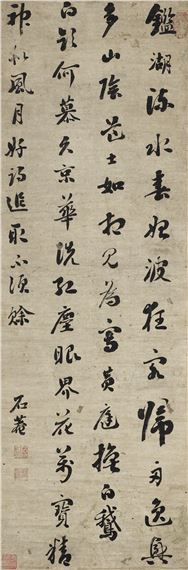 鑑湖流水春始波狂客歸舟逸興
多山陰道士如相見為寫黃庭換白鵝
白頭何慕久京華洗紅塵眼界花萬寶精
神秋風月好詩追取不須賒
石菴